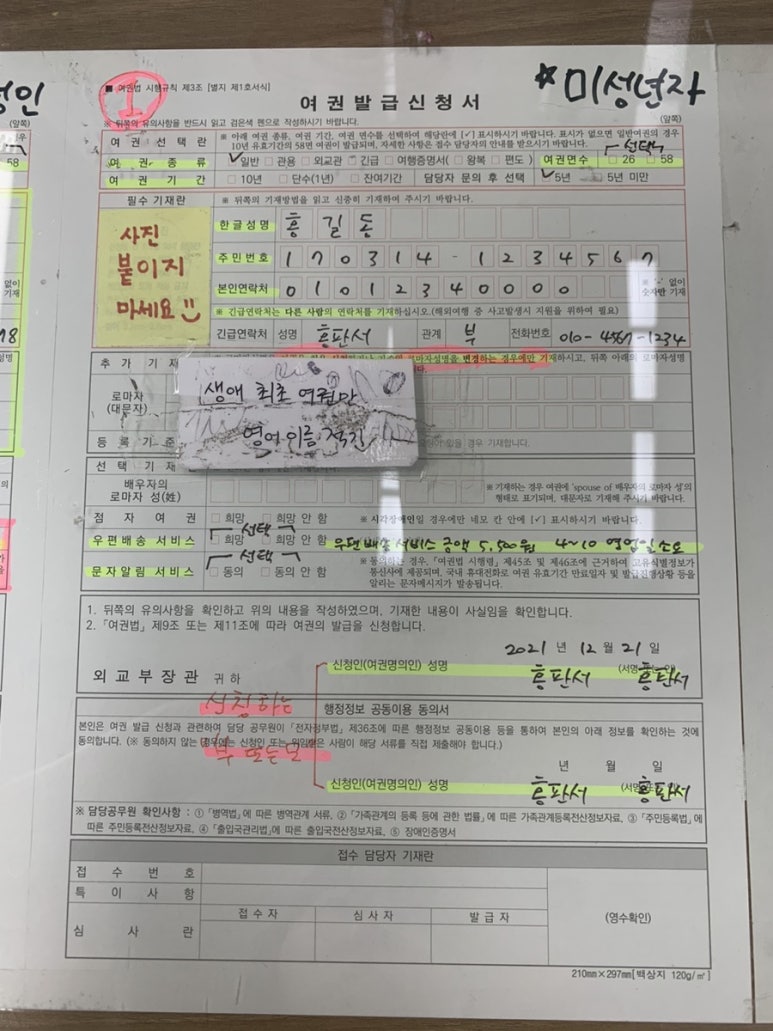 ■ 여권법 시행규칙 제3조 [별지 제1호서식]
1.
☆미성년자
여 권 발 급 신 청 서
※ 뒤쪽의 유의사항을 반드시 읽고 검은색 펜으로 작성하시기 바랍니다.
(앞쪽)
여 권 선 택 란
※ 아래 여권 종류, 여권 기간, 여권 면수를 선택하여 해당란에 [✓] 표시하시기 바랍니다. 표시가 없으면 일반여권의 경우
10년 유효기간의 58면 여권이 발급되며, 자세한 사항은 접수 담당자의 안내를 받으시기 바랍니다.
선택
여 권 종 류 ✓일반 □ 관용 □ 외교관 □ 긴급 □ 여행증명서(□ 왕복 □ 편도) 여권면수 □ 26 □ 58
여 권 기 간 □ 10년 □ 단수(1년) □ 잔여기간 담당자 문의 후 선택 ✓5년 □ 5년 미만
필수 기재란 ※ 뒤쪽의 기재방법을 읽고 신중히 기재하여 주시기 바랍니다.
사진
붙이지
마세요
한글성명 홍 길 동
주민번호 1 7 0 3 1 4 - 1 2 3 4 5 6 7
본인연락처 0 1 0 1 2 3 4 0 0 0 0 ※ '-' 없이
숫자만 기재
※ 긴급연락처는 다른 사람의 연락처를 기재하십시오.(해외여행 중 사고발생시 지원을 위하여 필요)
긴급연락처 성명 홍판서 관계 부 전화번호 010-4567-1234
추 가 기 재
로마자성명을 변경하는 경우에만 기재하시고, 뒤쪽 아래의 로마자성명
로마자
(대문자)
생애 최초 여권만
영어이름 적기
등 록 기 준
경우 기재합니다.
선 택 기 재
배우자의
로마자 성(姓)
※ 기재하는 경우 여권에 'spouse of 배우자의 로마자 성'의
형태로 표기되며, 대문자로 기재해 주시기 바랍니다.
점 자 여 권 □ 희망 □ 희망 안 함 ※ 시각장애인일 경우에만 네모 칸 안에 [✓] 표시하시기 바랍니다.
선택
우편배송 서비스 □ 희망 □ 희망 안 함 우편배송서비스 금액 5,500원 4~10 영업일소요
선택
문자알림 서비스 □ 동의 □ 동의 안 함
※ 동의하는 경우, 「여권법 시행령」 제45조 및 제46조에 근거하여 고유식별정보가
통신사에 제공되며, 국내 휴대전화로 여권 유효기간 만료일자 및 발급진행상황 등을
알리는 문자메시지가 발송됩니다.
1. 뒤쪽의 유의사항을 확인하고 위의 내용을 작성하였으며, 기재한 내용이 사실임을 확인합니다.
2. 「여권법」 제9조 또는 제11조에 따라 여권의 발급을 신청합니다.
2021 년 12 월 21 일
외교부장관 귀하
신청인(여권명의인) 성명 홍판서 홍판서
신청하는
부 또는 모
행정정보 공동이용 동의서
본인은 여권 발급 신청과 관련하여 담당 공무원이 「전자정부법」 제36조에 따른 행정정보 공동이용 등을 통하여 본인의 아래 정보를 확인하는 것에
동의합니다. (※ 동의하지 않는 경우에는 신청인 또는 위임받은 사람이 해당 서류를 직접 제출해야 합니다.)
년 월 일
신청인(여권명의인) 성명 홍판서 홍판서
※ 담당공무원 확인사항 : ① 「병역법」에 따른 병역관계 서류, ② 「가족관계의 등록 등에 관한 법률」에 따른 가족관계등록전산정보자료, ③ 「주민등록법」에
따른 주민등록전산정보자료, ④ 「출입국관리법」에 따른 출입국전산정보자료, ⑤ 장애인증명서
접수 담당자 기재란
접 수 번 호
특 이 사 항
심 사 란
접 수 자 심 사 자 발 급 자
(영수확인)
210mm×297mm[백상지 120g/㎡]